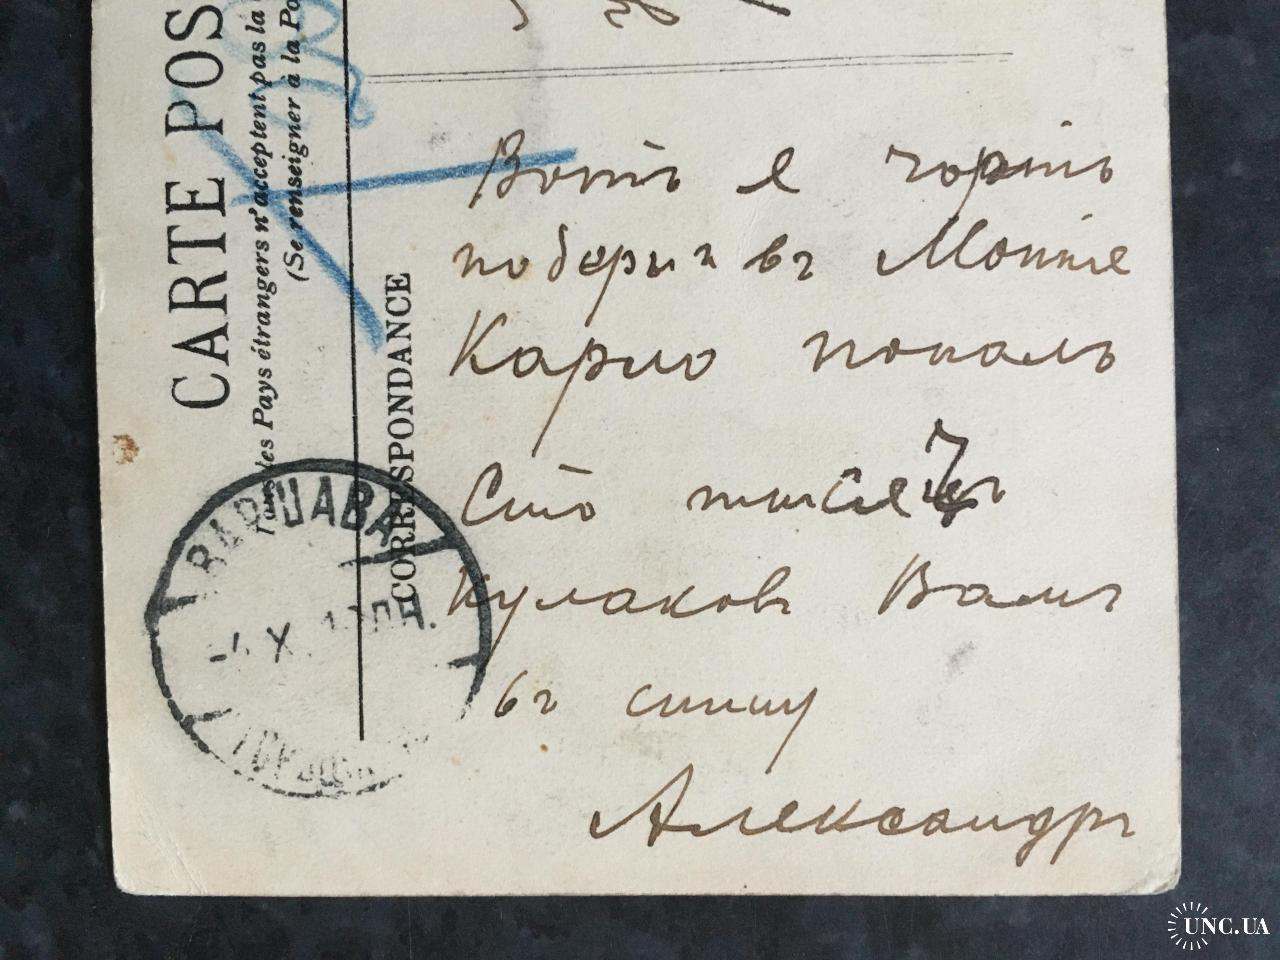 CARTE POS
Tous les Pays étrangers n'acceptent pas la
(Se renseigner à la Po
CORRESPONDANCE
Вотъ я чортъ
побери въ Монте
Карло попалъ
Сто тысячъ
Кулаковъ Вамъ
въ спину
Александръ
ВАРШАВА
-4 X
UNC.UA